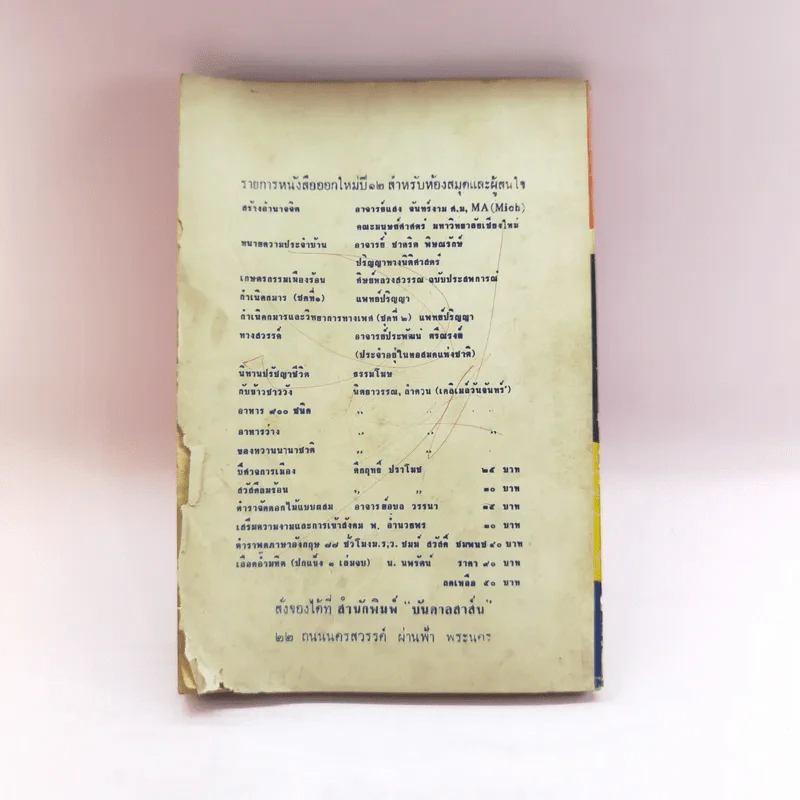 รายการหนังสือออกใหม่ปี๑๒ สำหรับห้องสมุดและผู้สนใจ
สร้างอำนาจจิต อาจารย์แสง จันทร์งาม ศ.ม, MA (Mich)
คณะมนุษย์ศาสตร์ มหาวิทยาลัยเชียงใหม่
ทนายความประจำบ้าน อาจารย์ ชาคริต พิษณรักษ์
ปริญญาทางนิติศาสตร์
เกษตรกรรมเมืองร้อน ทิษย์หลวงสวรรณ ฉบับประสพการณ์
กำเนิดกมาร (ชุดที่๑) แพทย์ปริญญา
กำเนิดกมารและวิทยาการทางเพศ (ชุดที่ ๒) แพทย์ปริญญา
ทางสวรรค์ อาจารย์ประพัฒน์ ตรีณรงค์
(ประจำอยู่ในหอสมดแห่งชาติ)
นิทานปรัชญาชีวิต ธรรมโฆษ
กับข้าวชาววัง นิตยาวรรณ, ลำดวน (เดลิเมล์วันจันทร์)
อาหาร ๘๐๐ ชนิด ,, ,, ,,
อาหารว่าง ,, ,, ,,
ของหวานนานาชาติ ,, ,,
ปีศาจการเมือง คึกฤทธิ์ ปราโมช ๒๕ บาท
สวัสดีลมร้อน ,, ,, ๓๐ บาท
ตำราจัดดอกไม้แบบผสม อาจารย์อบล วรรนา ๑๕ บาท
เสริมความงามและการเข้าสังคม พ. อำนวยพร ๓๐ บาท
ตำราพดภาษาอังกฤษ ๗๗ ชั่วโมงม.ร,ว. ชมน์ สวัสดิ์ ชมพนช ๔๐ บาท
เลือดล้ำมหิด (ปกแข็ง ๑ เล่มจบ) น. นพรัตน์ ราคา ๙๐ บาท
ลดเหลือ ๕๐ บาท
สั่งของได้ที่ สำนักพิมพ์ "บันดาลสาส์น"
๒๒ ถนนนครสวรรค์ ผ่านฟ้า พระนคร